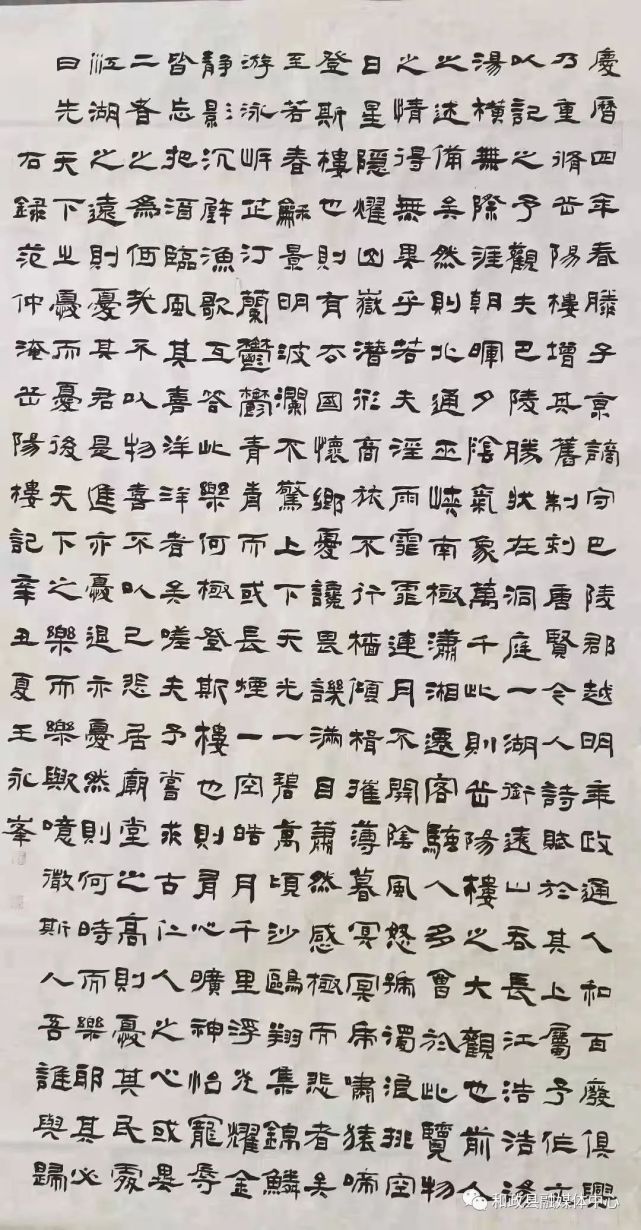 慶曆四年春滕子京謫守巴陵郡越明年政通人和百廢俱興
乃重脩岳陽樓增其舊制刻唐賢今人詩賦於其上屬予作文
以記之予觀夫巴陵勝狀在洞庭一湖銜遠山吞長江浩浩湯
湯橫無際涯朝暉夕陰氣象萬千此則岳陽樓之大觀也前人
之述備矣然則北通巫峽南極瀟湘遷客騷人多會於此覽物
之情得無異乎若夫淫雨霏霏連月不開陰風怒號濁浪排空
日星隱燿山嶽潛形商旅不行檣傾楫摧薄暮冥冥虎嘯猿啼
登斯樓也則有去國懷鄉憂讒畏譏滿目蕭然感極而悲者矣
至若春龢景明波瀾不驚上下天光一碧萬頃沙鷗翔集錦鱗
游泳岸芷汀蘭鬱鬱青青而或長煙一空皓月千里浮光耀金
靜影沉璧漁歌互答此樂何極登斯樓也則有心曠神怡寵辱
皆忘把酒臨風其喜洋洋者矣嗟夫予嘗求古仁人之心或異
二者之為何哉不以物喜不以己悲居廟堂之高則憂其民處
江湖之遠則憂其君是進亦憂退亦憂然則何時而樂耶其必
曰先天下之憂而憂後天下之樂而樂歟噫微斯人吾誰與歸
右錄范仲淹岳陽樓記辛丑夏王永峯
和政县融媒体中心